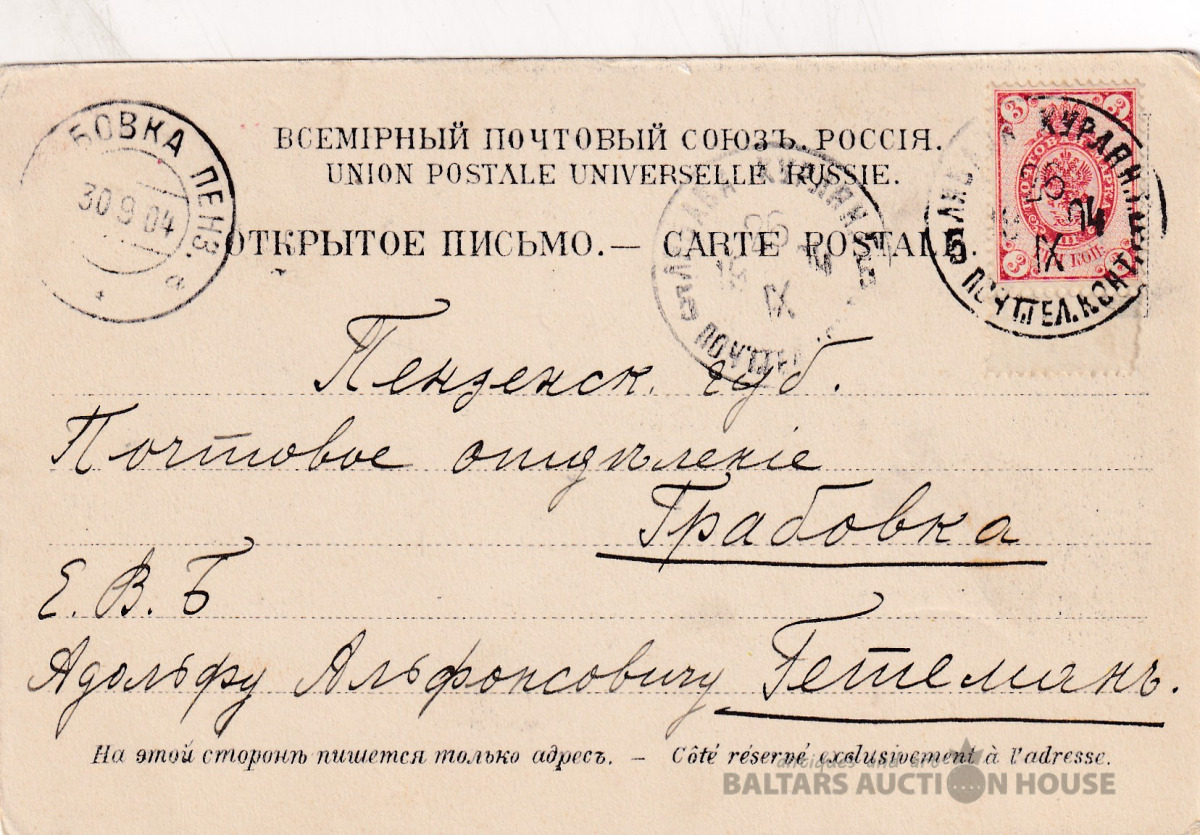 ВСЕМІРНЫЙ ПОЧТОВЫЙ СОЮЗЪ. РОССІЯ.
UNION POSTALE UNIVERSELLE RUSSIE.
ОТКРЫТОЕ ПИСЬМО. — CARTE POSTALE.
БОВКА ПЕНЗ.
30 9 04
3 3
3 КОП. 3
КУРЛЯН.
26
IX
04
ПОЧТ.ТЕЛ.КОНТ.
5 5
КУРЛЯН.
26
IX
Пензенск. губ.
Почтовое отдѣленіе
Грабовка
Е. В. Б
Адольфу Альфонсовичу Гетеманъ.
На этой сторонѣ пишется только адресъ. — Côté réservé exclusivement à l'adresse.
antiques and art
BALTARS AUCTION HOUSE